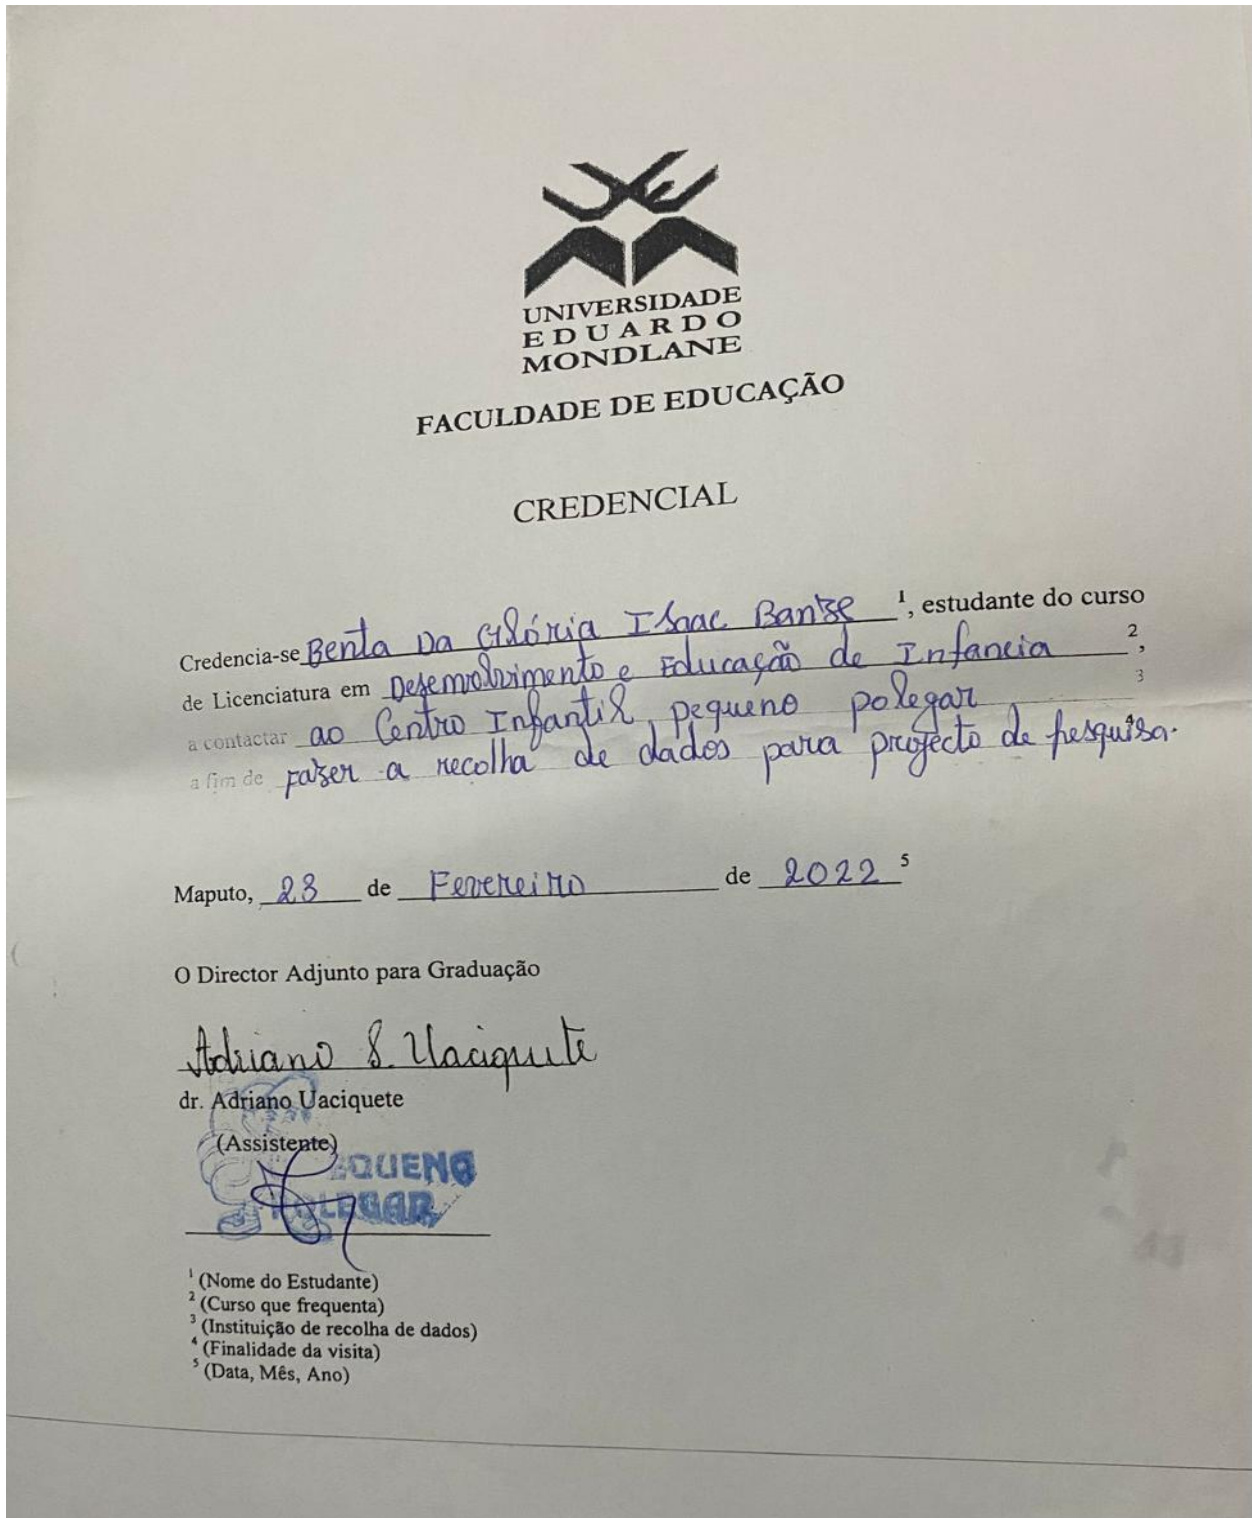 UNIVERSIDADE
EDUARDO
MONDLANE
FACULDADE DE EDUCAÇÃO
CREDENCIAL
Credencia-se Benta Da Glória Isaac Banze ¹, estudante do curso
de Licenciatura em Desenvolvimento e Educação de Infancia ²,
a contactar ao Centro Infantil, pequeno polegar ³
a fim de fazer a recolha de dados para projecto de pesquisa. ⁴
Maputo, 23 de Fevereiro de 2022 ⁵
O Director Adjunto para Graduação
Adriano S. Uaciquete
dr. Adriano Uaciquete
(Assistente)
PEQUENO
POLEGAR
¹ (Nome do Estudante)
² (Curso que frequenta)
³ (Instituição de recolha de dados)
⁴ (Finalidade da visita)
⁵ (Data, Mês, Ano)